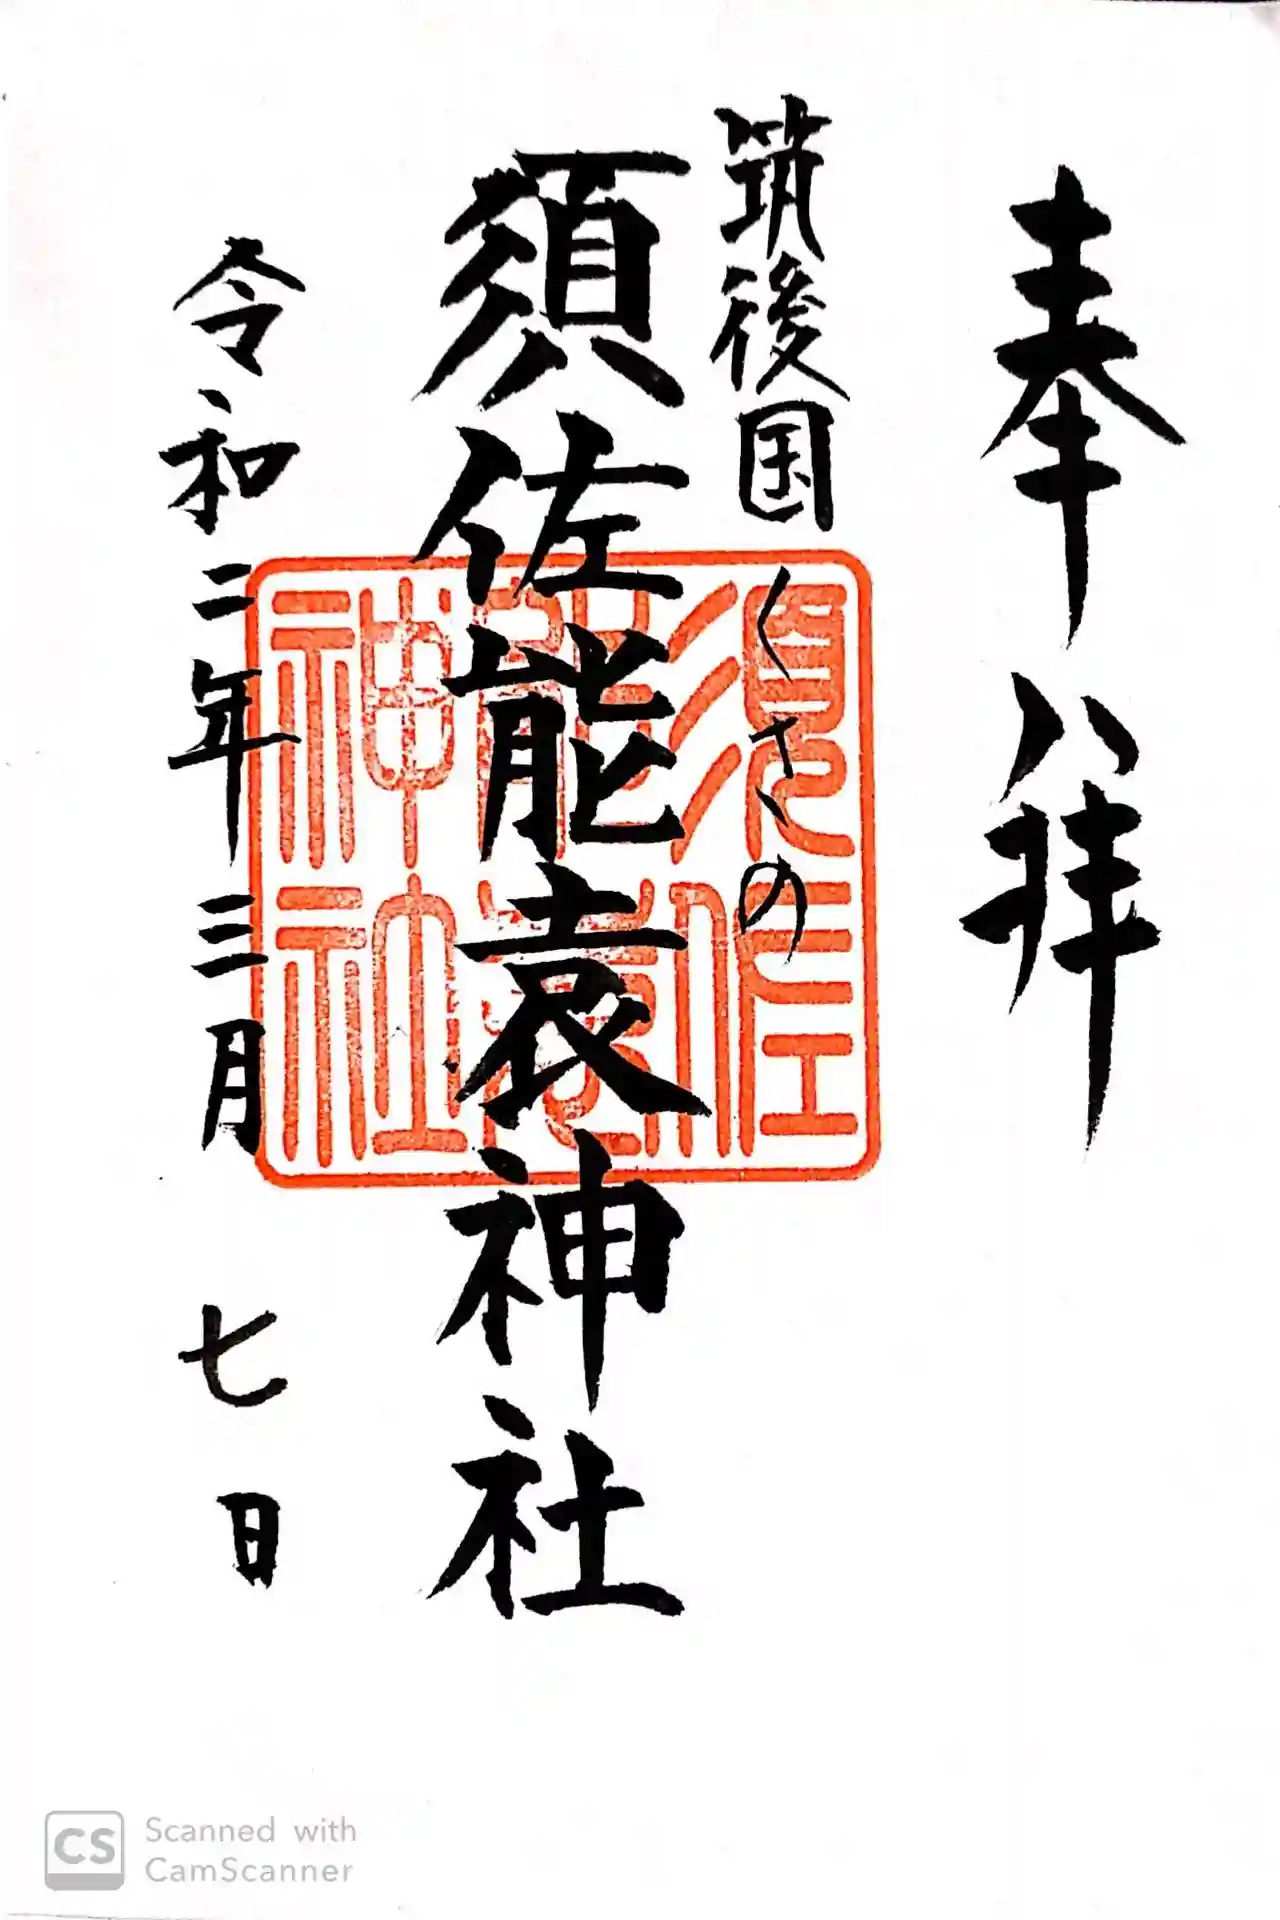 奉拝
筑後国くさの
須佐能袁神社
須佐
能袁
神社
令和二年三月七日
CS Scanned with
CamScanner